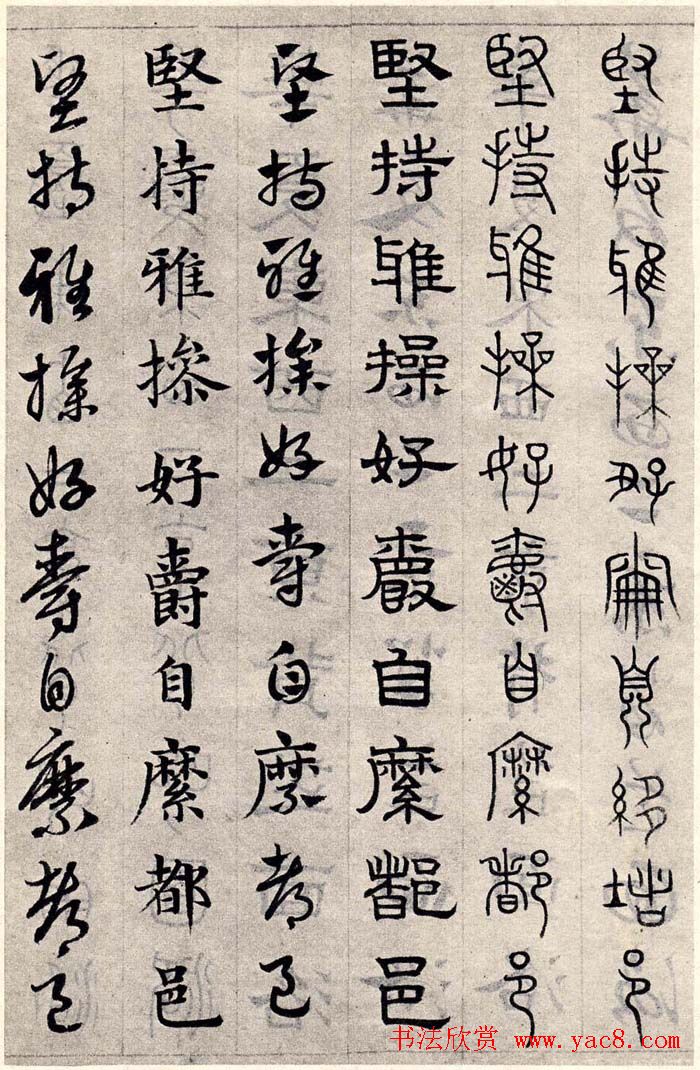 堅持雅操好爵自縻都邑
堅持雅操好爵自縻都邑
堅持雅操好爵自縻都邑
堅持雅操好爵自縻都邑
堅持雅操好爵自縻都邑
堅持雅操好爵自縻都邑
书法欣赏 www.yac8.com